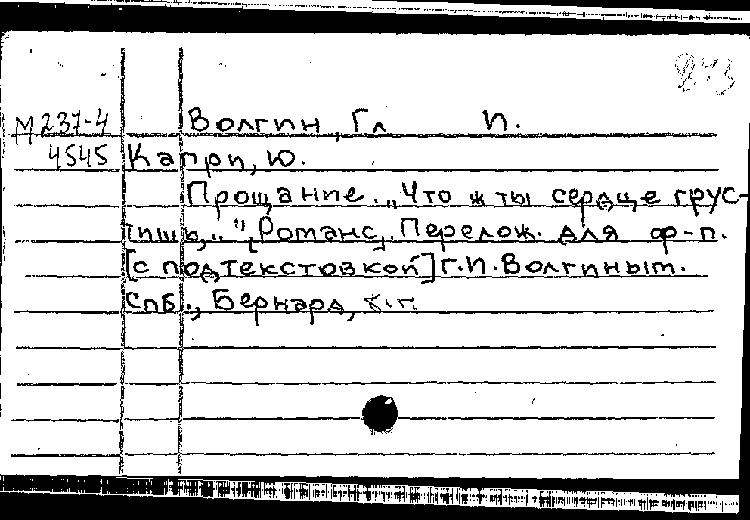 М 237-4 Волгин, Гл И.
4545 Капри, Ю.
Прощание. „Что ж ты сердце грус-
тишь,..." [Романс]. Перелож. для ф-п.
[с подтекстовкой] Г.И. Волгиным.
Спб., Бернард,